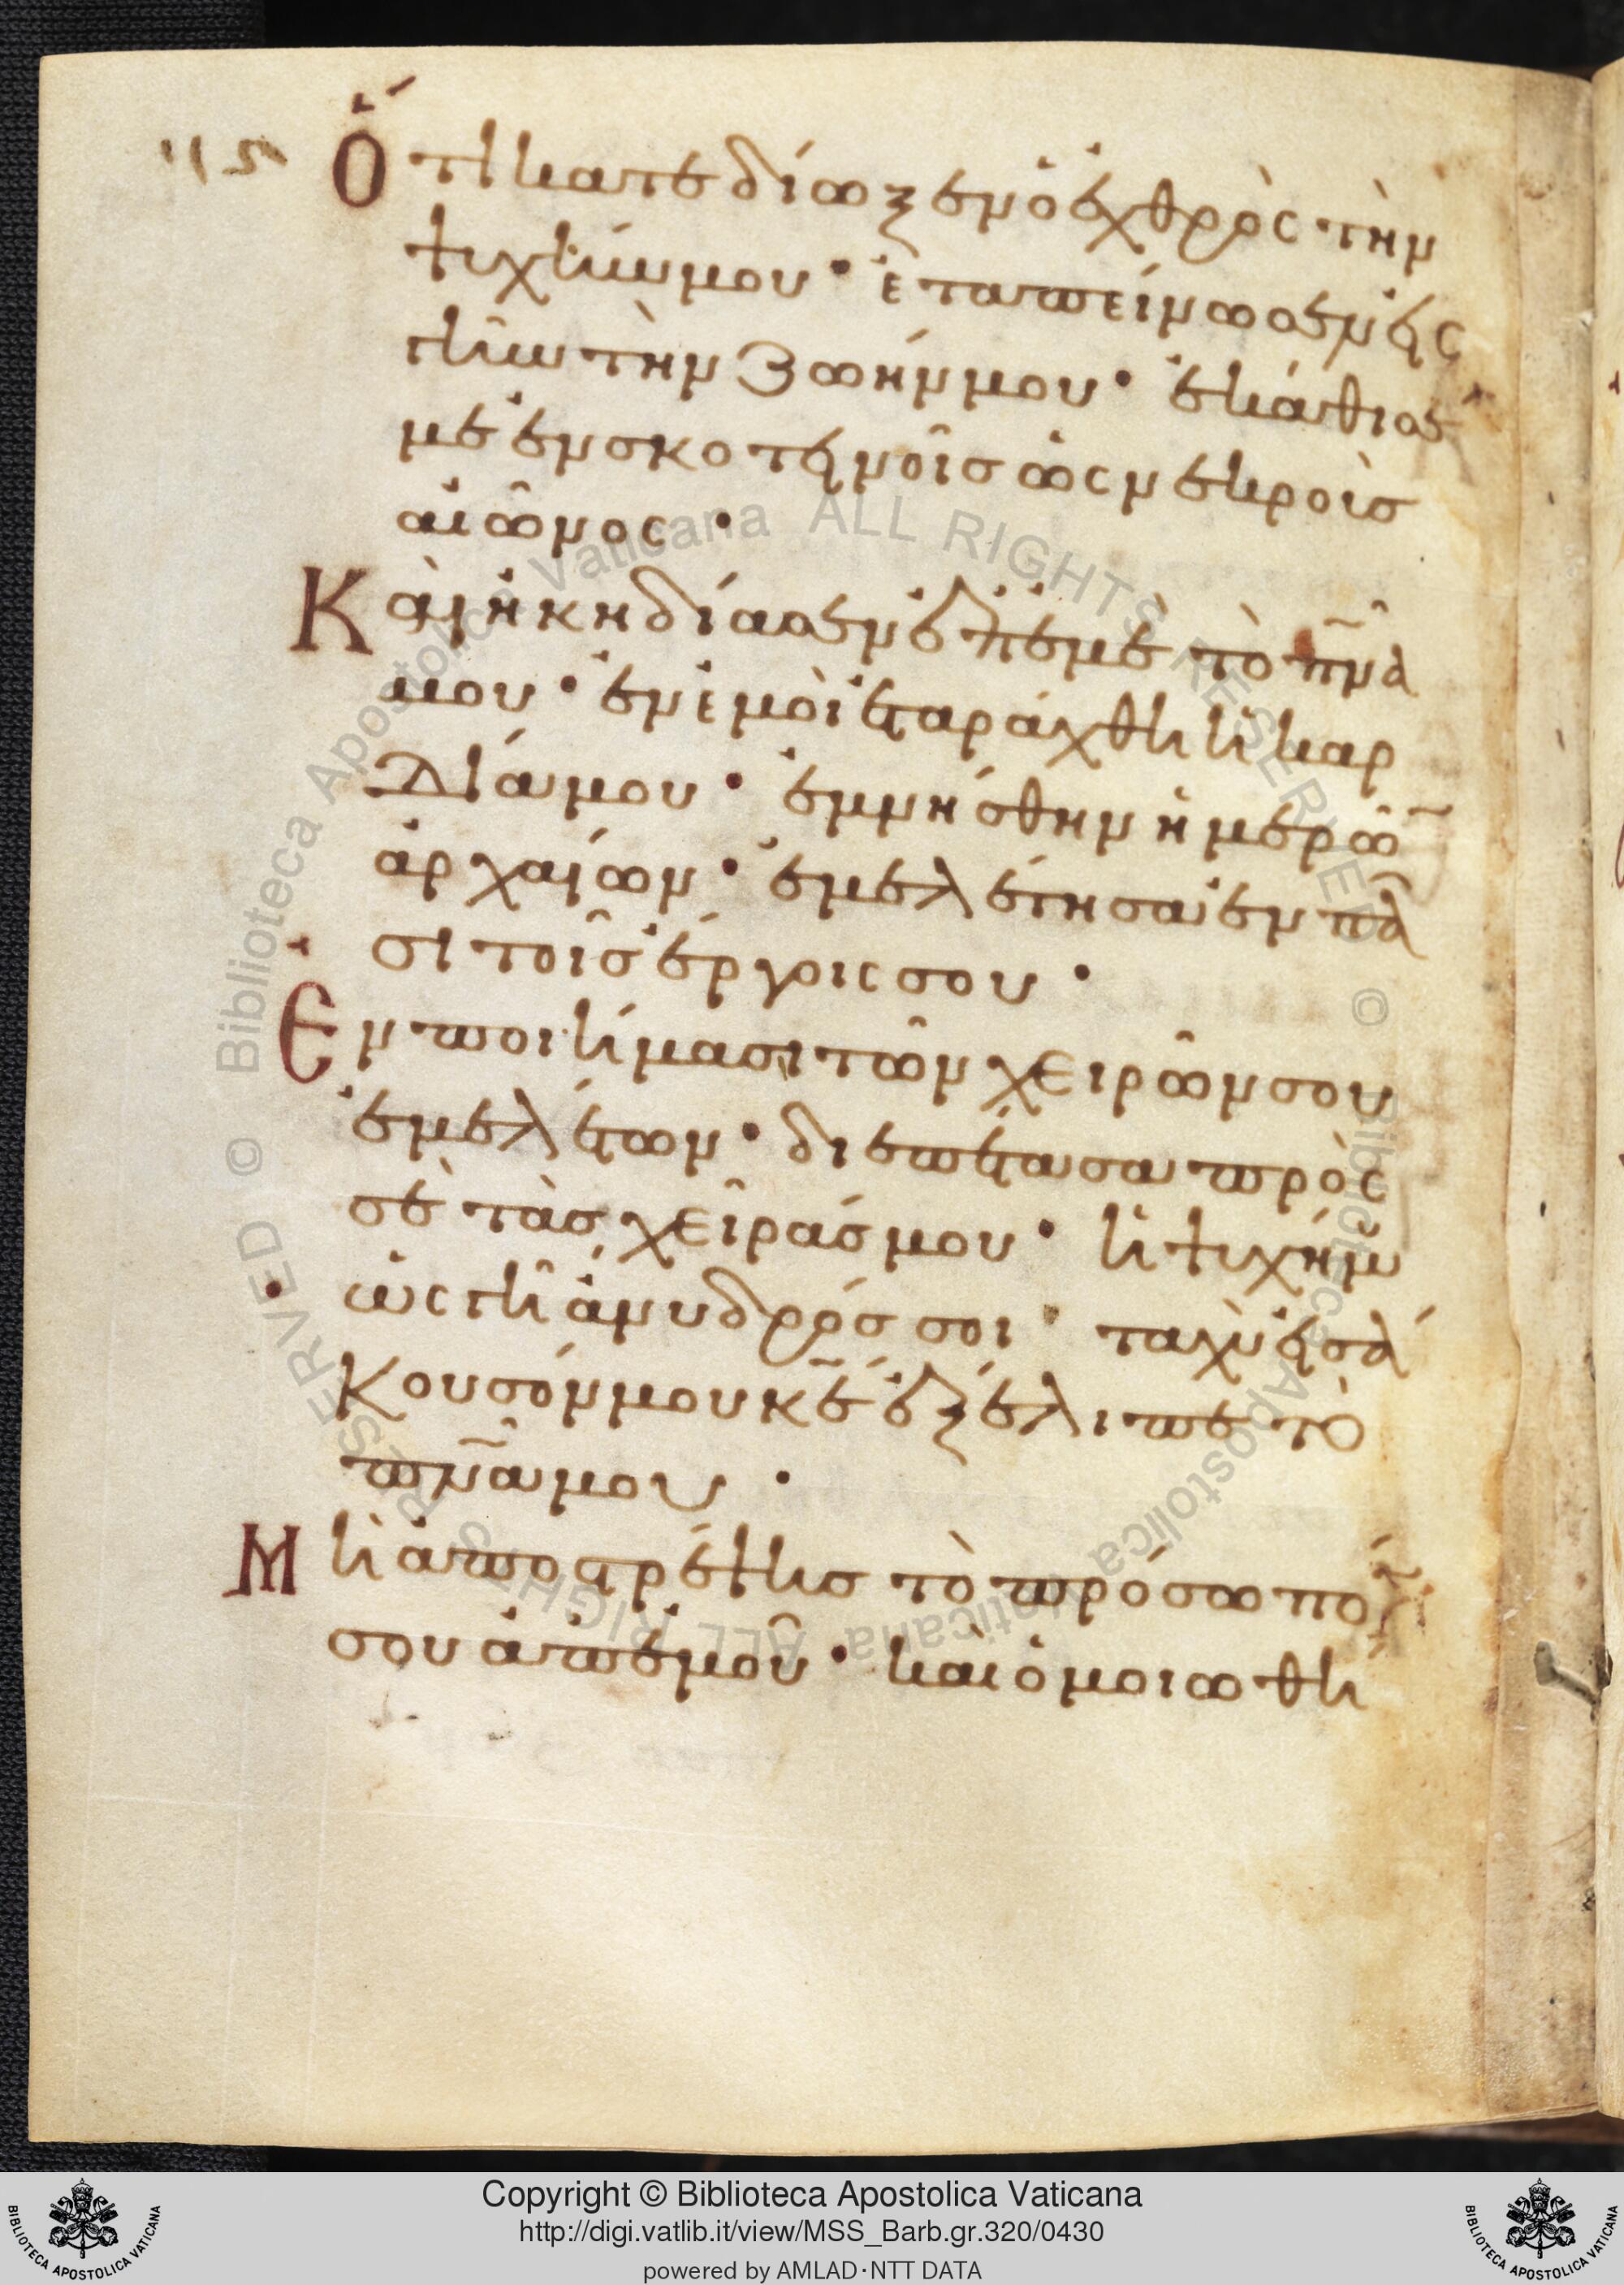 115 Ὅτι κατεδίωξεν ὁ ἐχθρὸς τὴν
ψυχήν μου· ἐταπείνωσεν εἰς
τὴν τὴν ζωήν μου· ἐκάθισε
με ἐν σκοτεινοῖς ὡς νεκροὺς
αἰῶνος·
Καὶ ἠκηδίασεν ἐπ ἐμὲ τὸ πν̅α
μου· ἐν ἐμοὶ ἐταράχθη ἡ καρ
δία μου· ἐμνήσθην ἡμερῶ̅
ἀρχαίων· ἐμελέτησα ἐν πᾶ
σι τοῖς ἔργοις σου·
Ἐν ποιήμασι τῶν χειρῶν σου
ἐμελέτων· διεπέτασα πρὸς
σὲ τὰς χεῖράς μου· ἡ ψυχή μου
ὡς γῆ ἄνυδρός σοι· ταχὺ εἰσά
κουσόν μου κ̅ε ἐξέλιπε τὸ
πν̅α μου·
Μὴ ἀποστρέψῃς τὸ πρόσωπο̅
σου ἀπ ἐμοῦ· καὶ ὁμοιωθή
Biblioteca Apostolica Vaticana ALL RIGHTS RESERVED ©
Biblioteca Apostolica Vaticana ALL RIGHTS RESERVED ©
Copyright © Biblioteca Apostolica Vaticana
http://digi.vatlib.it/view/MSS_Barb.gr.320/0430
powered by AMLAD·NTT DATA
BIBLIOTECA APOSTOLICA VATICANA
BIBLIOTECA APOSTOLICA VATICANA